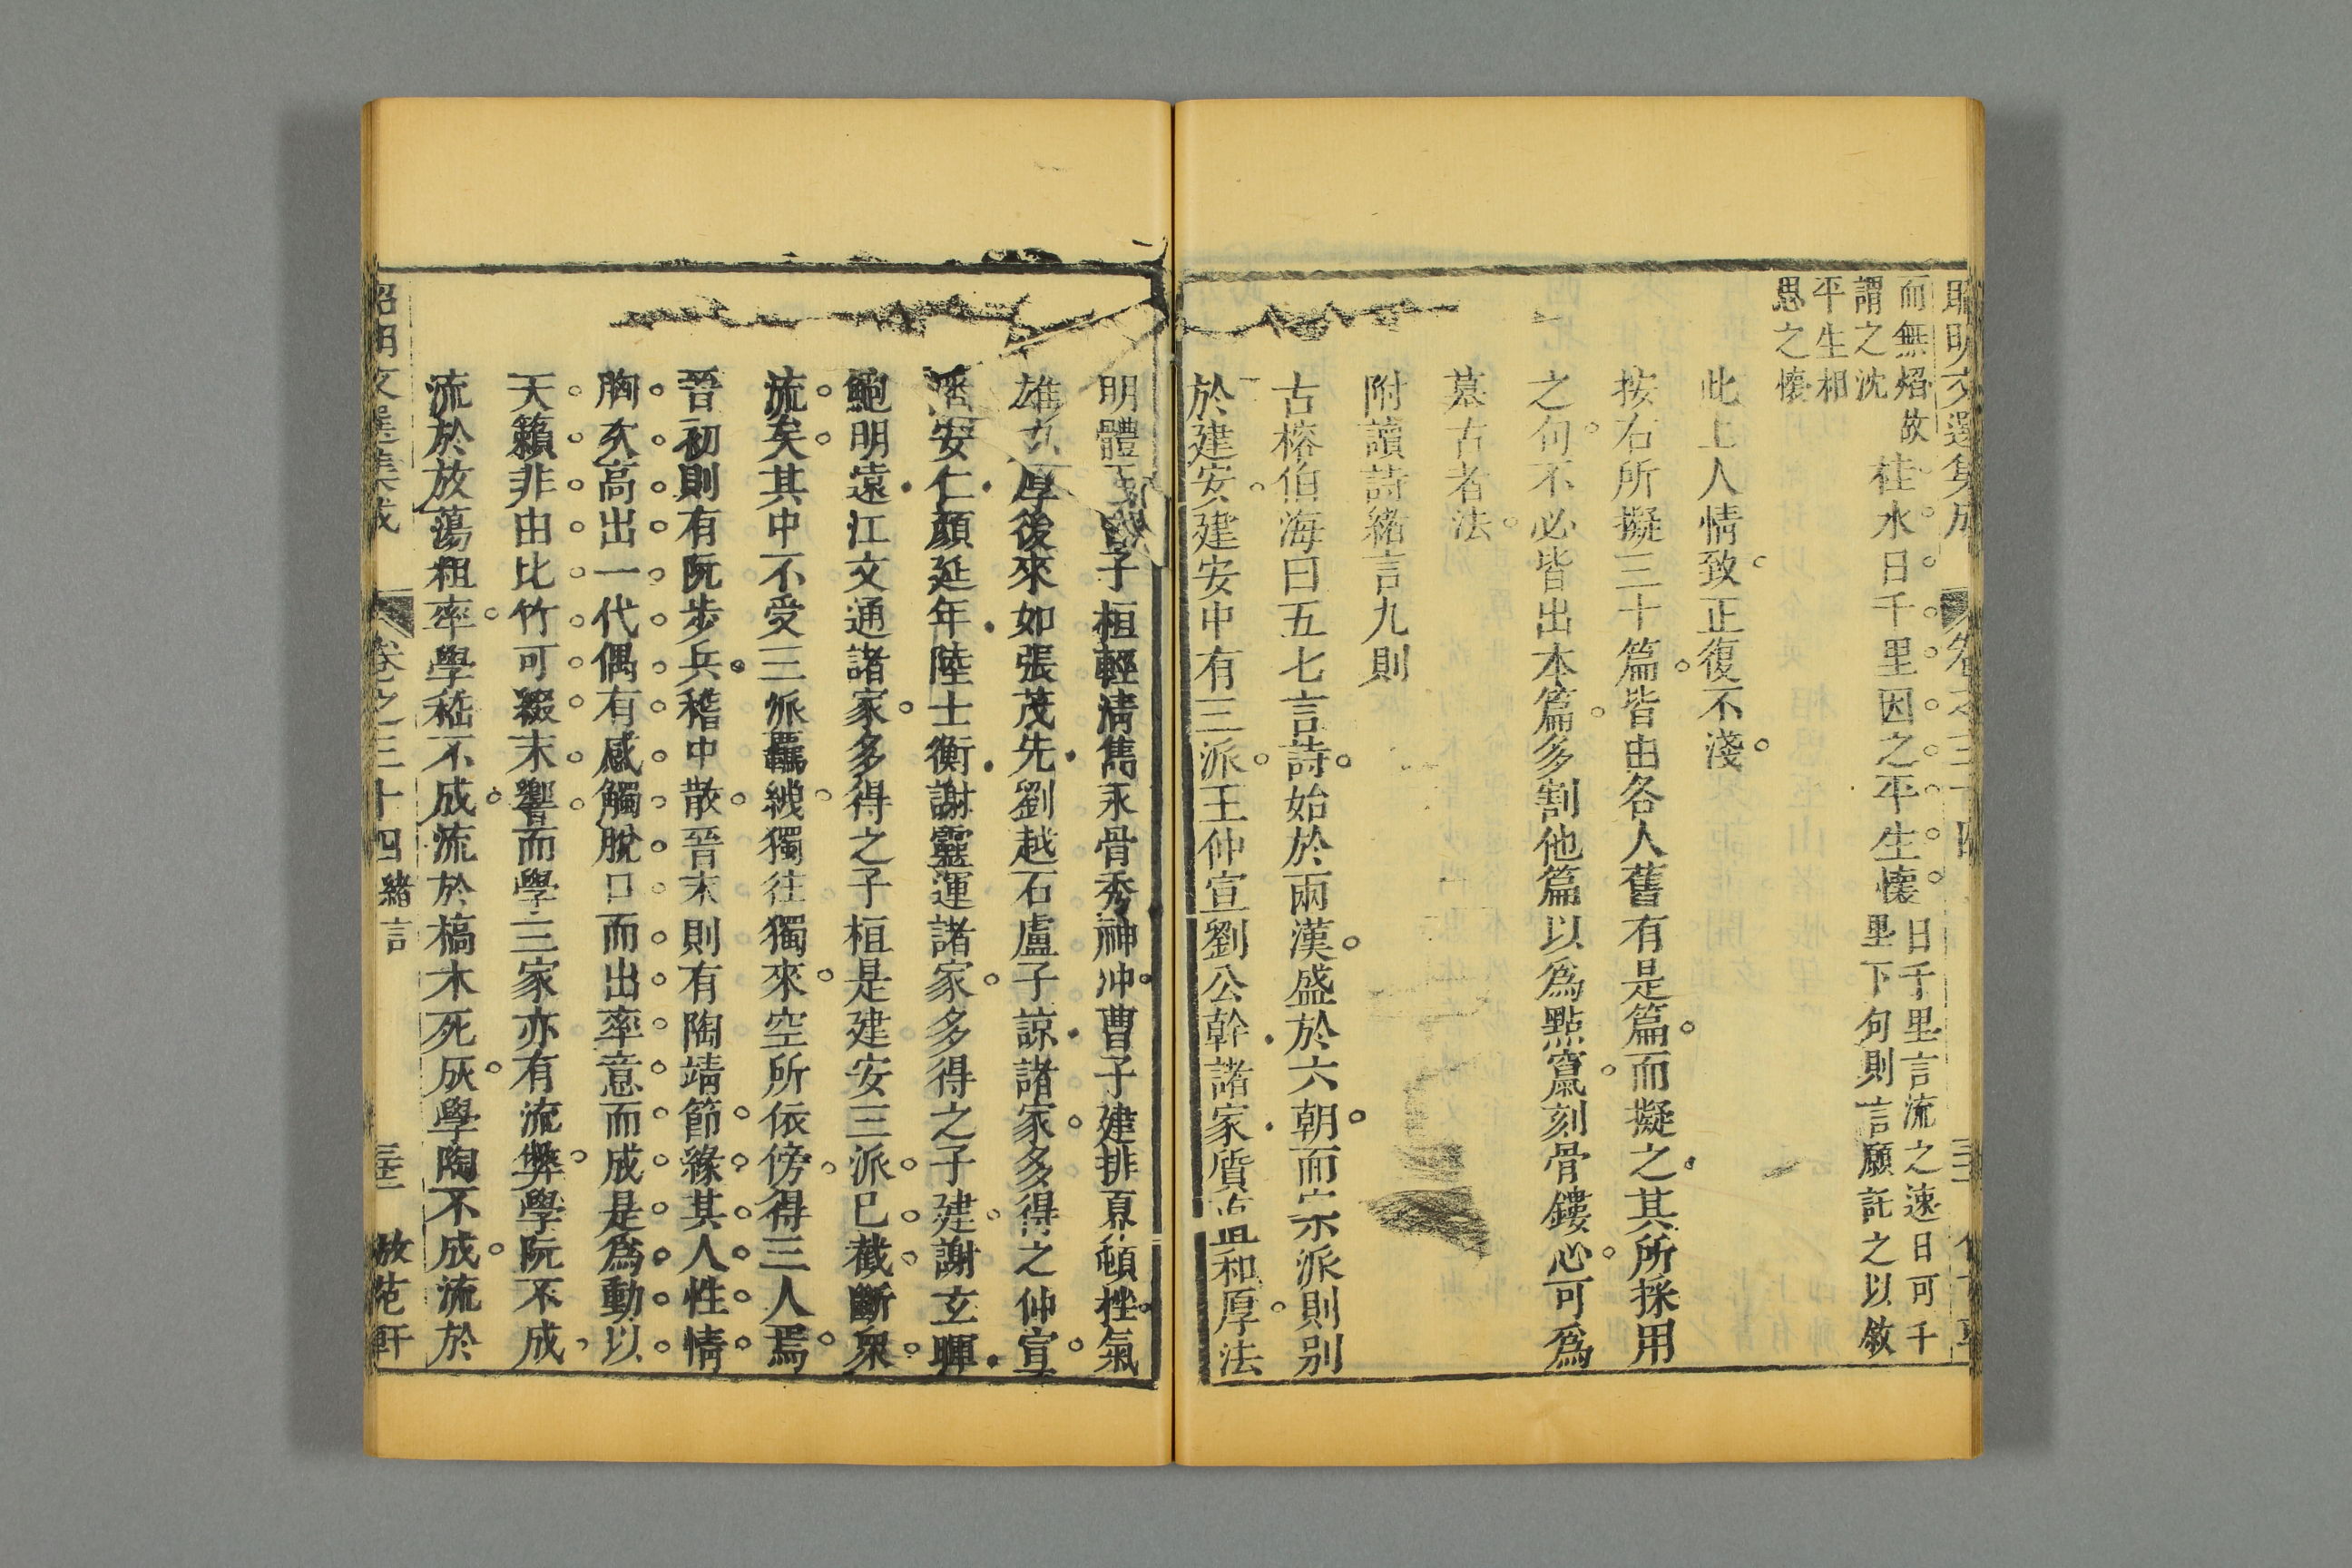 昭明文選集成 卷之三十四
而無焰故
謂之沈
平生相
思之懷
桂水日千里因之平生懷
日千里言流之速日可千
里下句則言願託之以敘
此上人情致正復不淺
按右所擬三十篇皆由各人舊有是篇而擬之其所採用
之句不必皆出本篇多割他篇以爲點竄刻骨鏤心可爲
慕古者法
附讀詩緒言九則
古榕伯海曰五七言詩始於兩漢盛於六朝而宗派則別
於建安建安中有三派王仲宣劉公幹諸家質 和厚法
明體 子桓輕清雋永骨秀神冲曹子建排 頓挫氣
雄 厚後來如張茂先劉越石盧子諒諸家多得之仲宣
潘安仁顔延年陸士衡謝靈運諸家多得之子建謝玄暉
鮑明遠江文通諸家多得之子桓是建安三派已截斷衆
流矣其中不受三派羈紲獨往獨來空所依傍得三人焉
晉初則有阮步兵嵇中散晉末則有陶靖節緣其人性情
胸次高出一代偶有感觸脫口而出率意而成是爲動以
天籟非由比竹可綴末響而學三家亦有流弊學阮不成
流於放蕩粗率學嵇不成流於槁木死灰學陶不成流於
昭明文選集成 卷之三十四 緒言 倣范軒